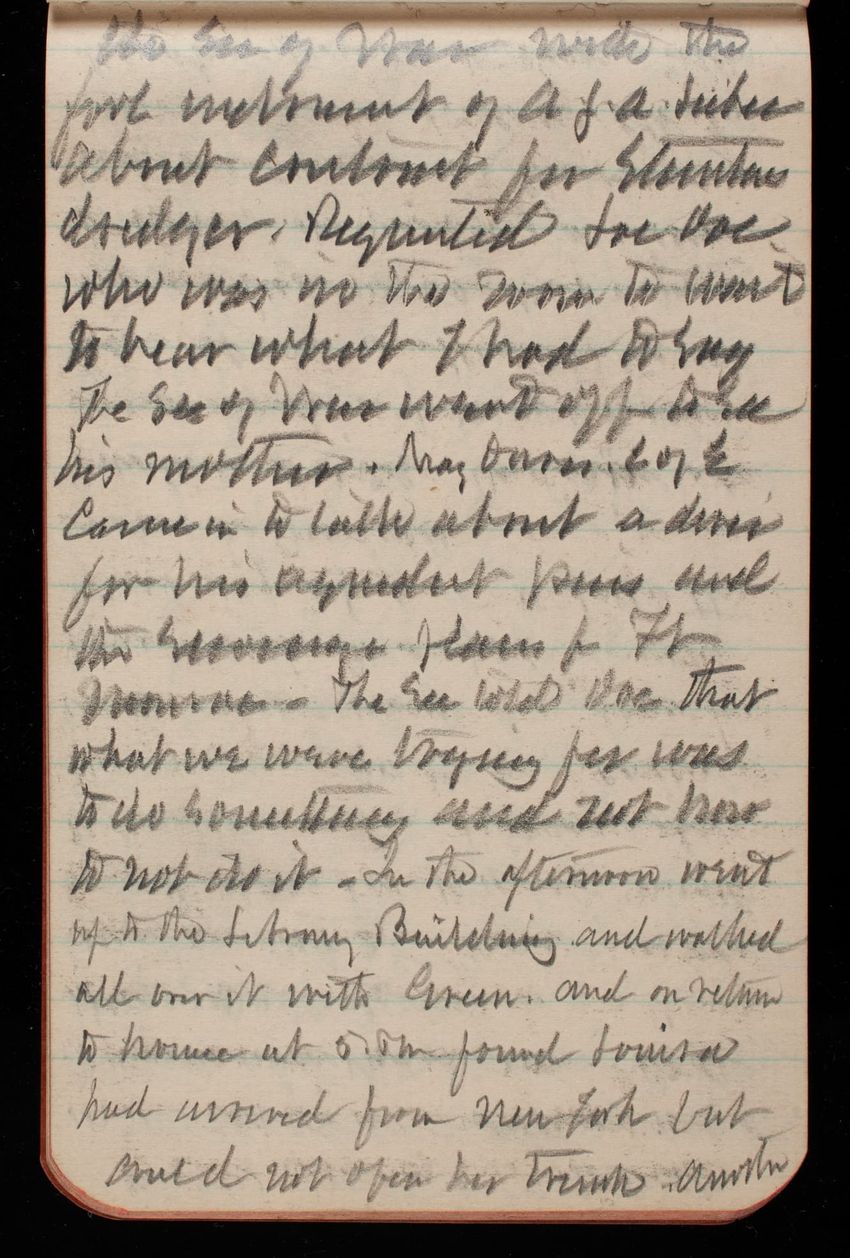 the Sec of War with the
fool indorsment of A G. A.
about contract for
dredger. Requested Doe
who was in the room to wait
to hear what I had to say
The Sec of War went off to see
his mother. Maj Davis. C of E
Came in to talk about a
for his aqueduct and
the Sewerage plans for Ft
Monroe - The Sec told Doe that
what we were trying for was
to do something and not how
to not do it - In the afternoon went
up to the Library Building and walked
all over it with Green. and on return
to house at 5. Pm found Louisa
had arrived from New York but
could not open her trunk.